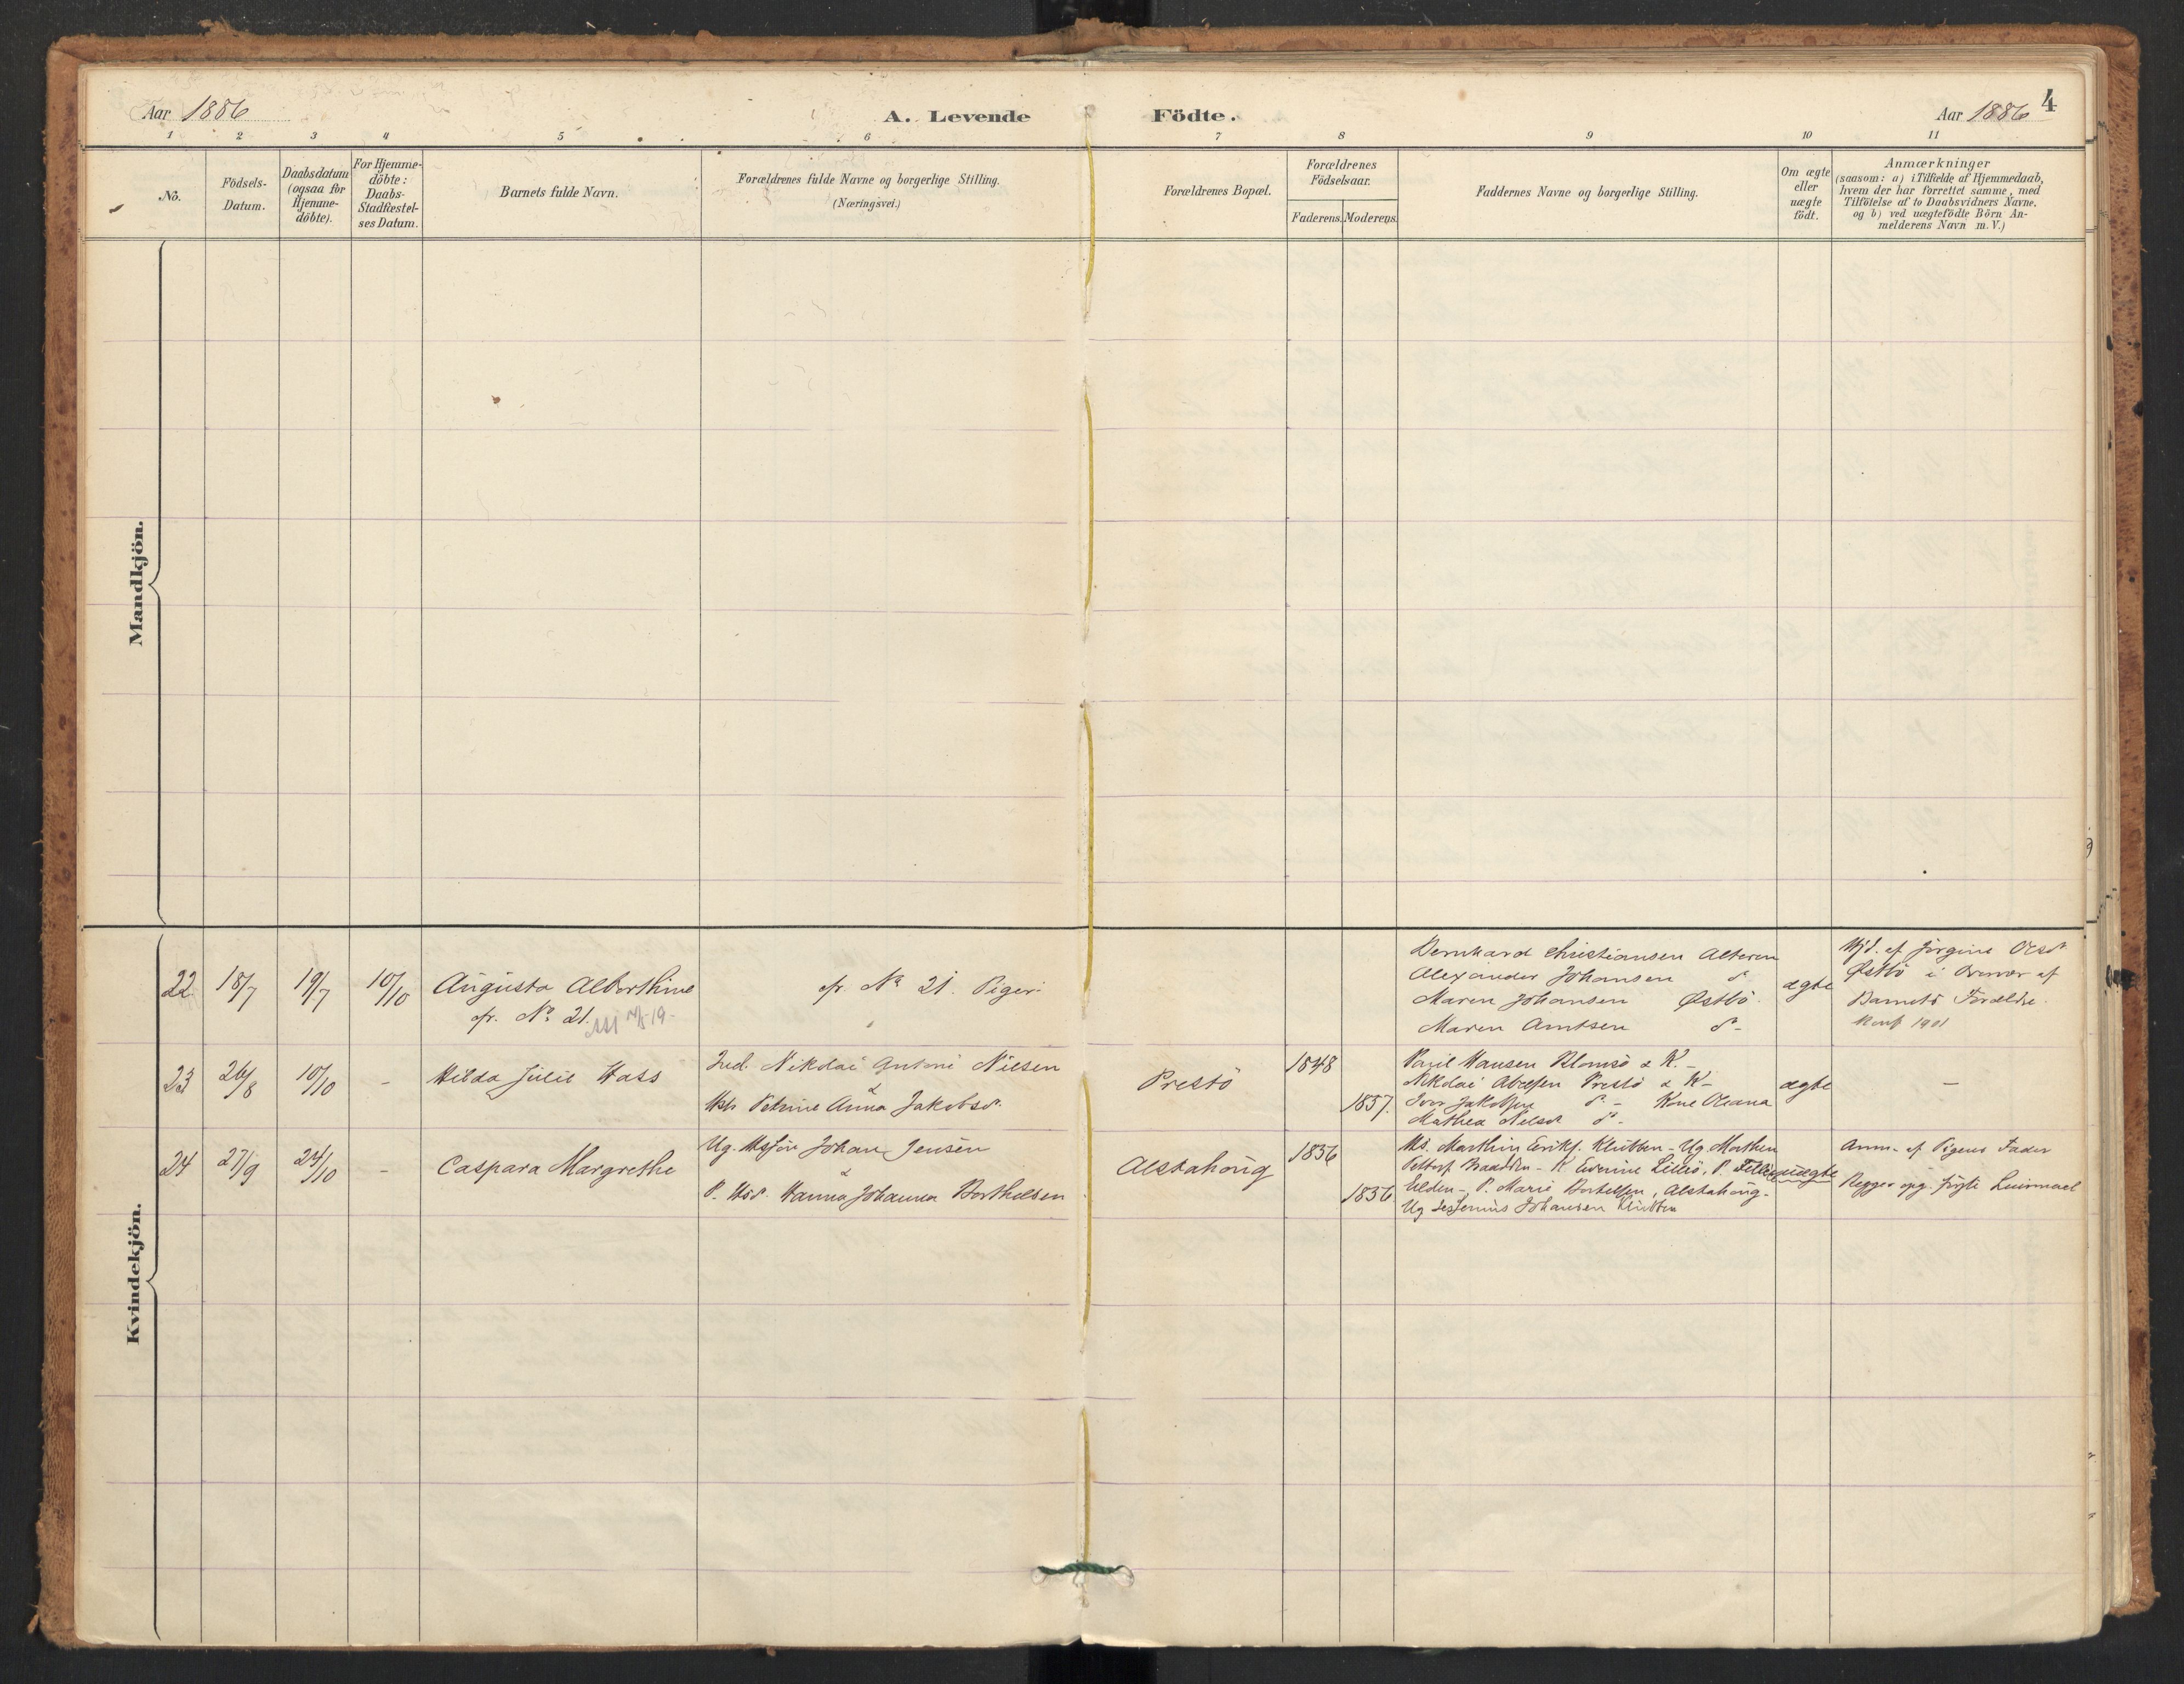 4
Aar 1886
A. Levende Födte.
Aar 1886
1 2 3 4 5 6 7 8 9 10 11
No.
Födsels-
Datum.
Daabsdatum
(ogsaa for
Hjemme-
döbte).
For Hjemme-
döbte:
Daabs-
Stadfæstel-
ses Datum.
Barnets fulde Navn.
Forældrenes fulde Navne og borgerlige Stilling.
(Næringsvei.)
Forældrenes Bopæl.
Forældrenes
Födselsaar.
Faderens. Moderens.
Faddernes Navne og borgerlige Stilling.
Om ægte
eller
uægte
födt.
Anmærkninger
(saasom: a) i Tilfælde af Hjemmedaab,
hvem der har forrettet samme, med
Tilföielse af to Daabsvidners Navne,
og b) ved uægtefödte Börn An-
melderens Navn m. V.)
Mandkjön.
Kvindekjön.
22 18/7 19/7 10/10
Augusta Alberthine
cfr. No 21.
cfr. No 21. Piger
Bernhard Christiansen Alteren
Alexander Johansen do
Maren Johansen Østbö.
Maren Amtsen do -
ægte
Hjd. af Jörgine Olsd
Østbö i Overvær af
Barnets Forældre.
Konf 1901
23 26/8 10/10 -
Hilda Julie Hass
Ind. Nikolai Antoni Nilsen
&
Hstr Petrine Anna Jakobsd.
Prestö
1848
1857.
Hansen Blomsö & K. -
Nikolai Prestö & K -
Iver Jakobsen do - Kone Oleana
Mathea Nilsd do -
ægte
-
24 27/9 24/10 -
Caspara Margrethe
Ug. Johan Jensen
&
P. Hanna Johanna Berthelsen
Alstahoug
1856
1856
Marthin Eriks. Klubben - Ug. Morthen
- K Lillö. P.
Elden - P. Marie Bertelsen, Alstahoug -
Ug Johansen Klubben
uægte
Anm. af Pigens Fader